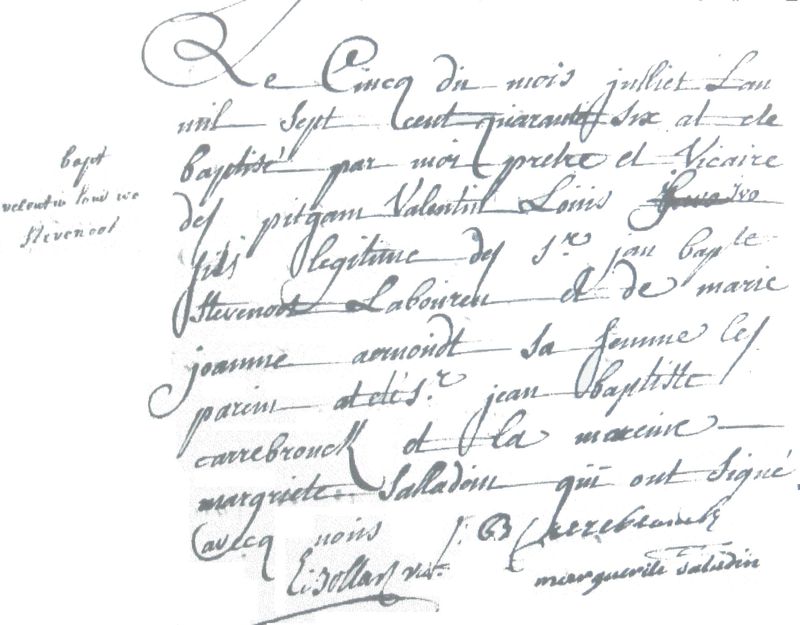 bapt
valentin louis ivo
Stevenoot
Le Cincq du mois julliet Lan
mil sept cent quarante six at ete
baptisé par moi pretre et Vicaire
des pitgam Valentin Loüis ivo
fils legitime des Sr. jan bapte
Stevenoot Laboureu et de marie
joanne aernoudt sa femme les
parin at eté Sr. jean baptiste
carrebrouck et la mareine
margriete Salladin qui ont signé
avecq nous J: B Carrebrouck
vic.
marguerite saladin